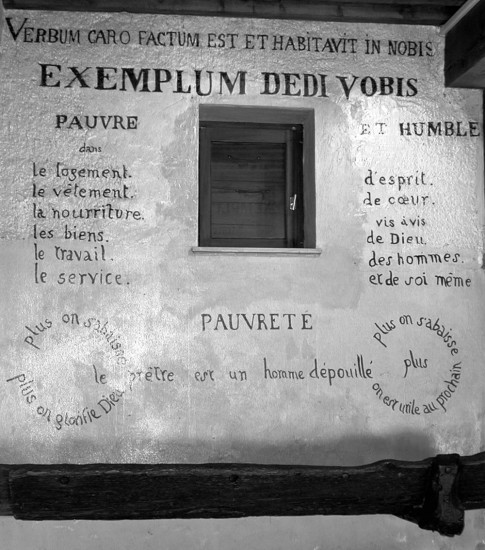 VERBUM CARO FACTUM EST ET HABITAVIT IN NOBIS
EXEMPLUM DEDI VOBIS
PAUVRE
dans
le logement.
le vêtement.
la nourriture.
les biens.
le travail.
le service.
ET HUMBLE
d'esprit.
de cœur.
vis à vis
de Dieu.
des hommes.
et de soi même
PAUVRETÉ
plus on s'abaisse
plus on glorifie Dieu
le prêtre est un homme dépouillé
plus on s'abaisse
plus
on est utile au prochain